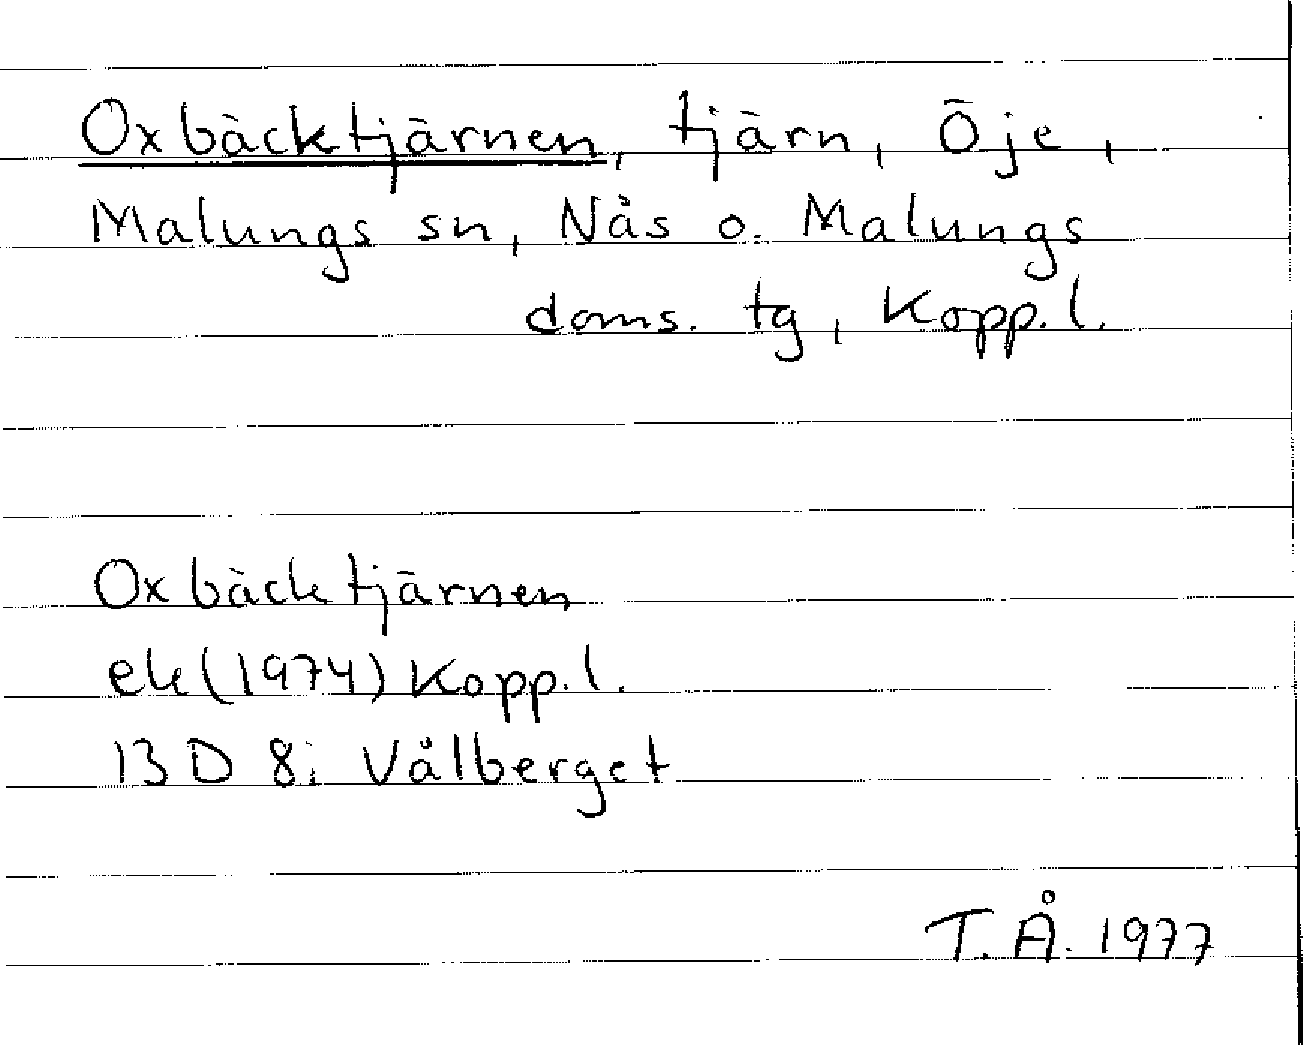 Oxbäcktjärnen, tjärn, Öje,
Malungs sn, Nås o. Malungs
doms. tg, Kopp. l.
Oxbäcktjärnen
ek (1974) Kopp. l.
13 D 8i Vålberget
T. Å. 1977